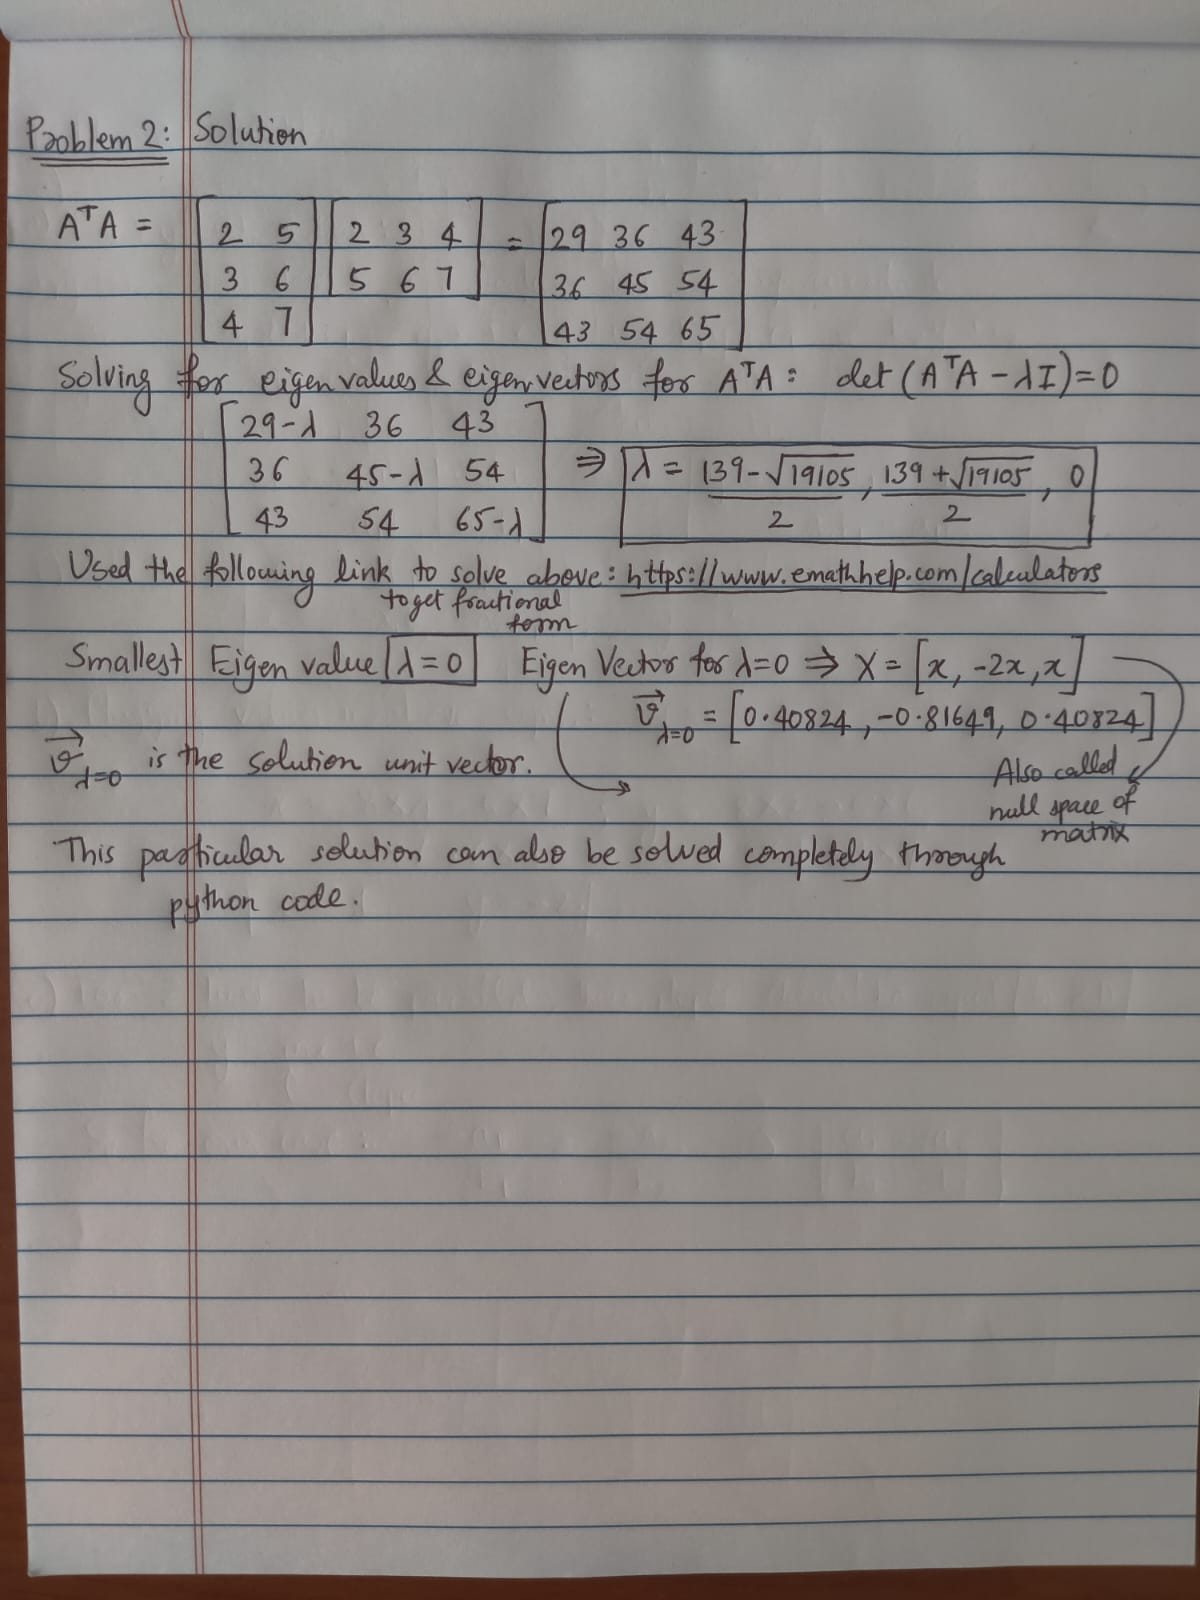 Problem 2: Solution
AᵀA = [2 5; 3 6; 4 7] [2 3 4; 5 6 7] = [29 36 43; 36 45 54; 43 54 65]
Solving for eigen values & eigen vectors for AᵀA: det (AᵀA - λI) = 0
[29-λ 36 43; 36 45-λ 54; 43 54 65-λ] ⇒ λ = (139 - √19105)/2, (139 + √19105)/2, 0
Used the following link to solve above: https://www.emathhelp.com/calculators
to get fractional
form
Smallest Eigen value λ = 0 Eigen Vector for λ=0 ⇒ X = [x, -2x, x]
v⃗ λ=0 = [0.40824, -0.81649, 0.40824]
v⃗ λ=0 is the solution unit vector.
Also called
null space of
matrix
This particular solution can also be solved completely through
python code.